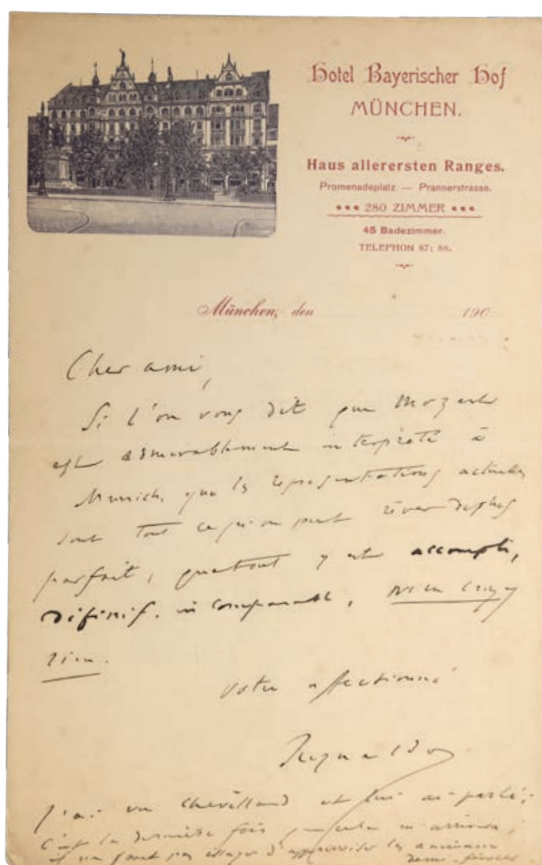 Hotel Bayerischer Hof
MÜNCHEN.
Haus allerersten Ranges.
Promenadeplatz — Prannerstrasse.
*** 280 ZIMMER ***
45 Badezimmer.
TELEPHON 87; 88.
München, den 190
Cher ami,
Si l'on vous dit que Mozart
est admirablement interprété à
Munich, que les représentations actuelles
sont tout ce qu'on peut rêver de plus
parfait, que tout y est accompli,
définitif, incomparable, n'en croyez
rien.
Votre affectionné
Reynaldo
J'ai vu Chevillard et lui ai parlé;
C'est la dernière fois
il ne faut pas essayer d'apprivoiser les animaux